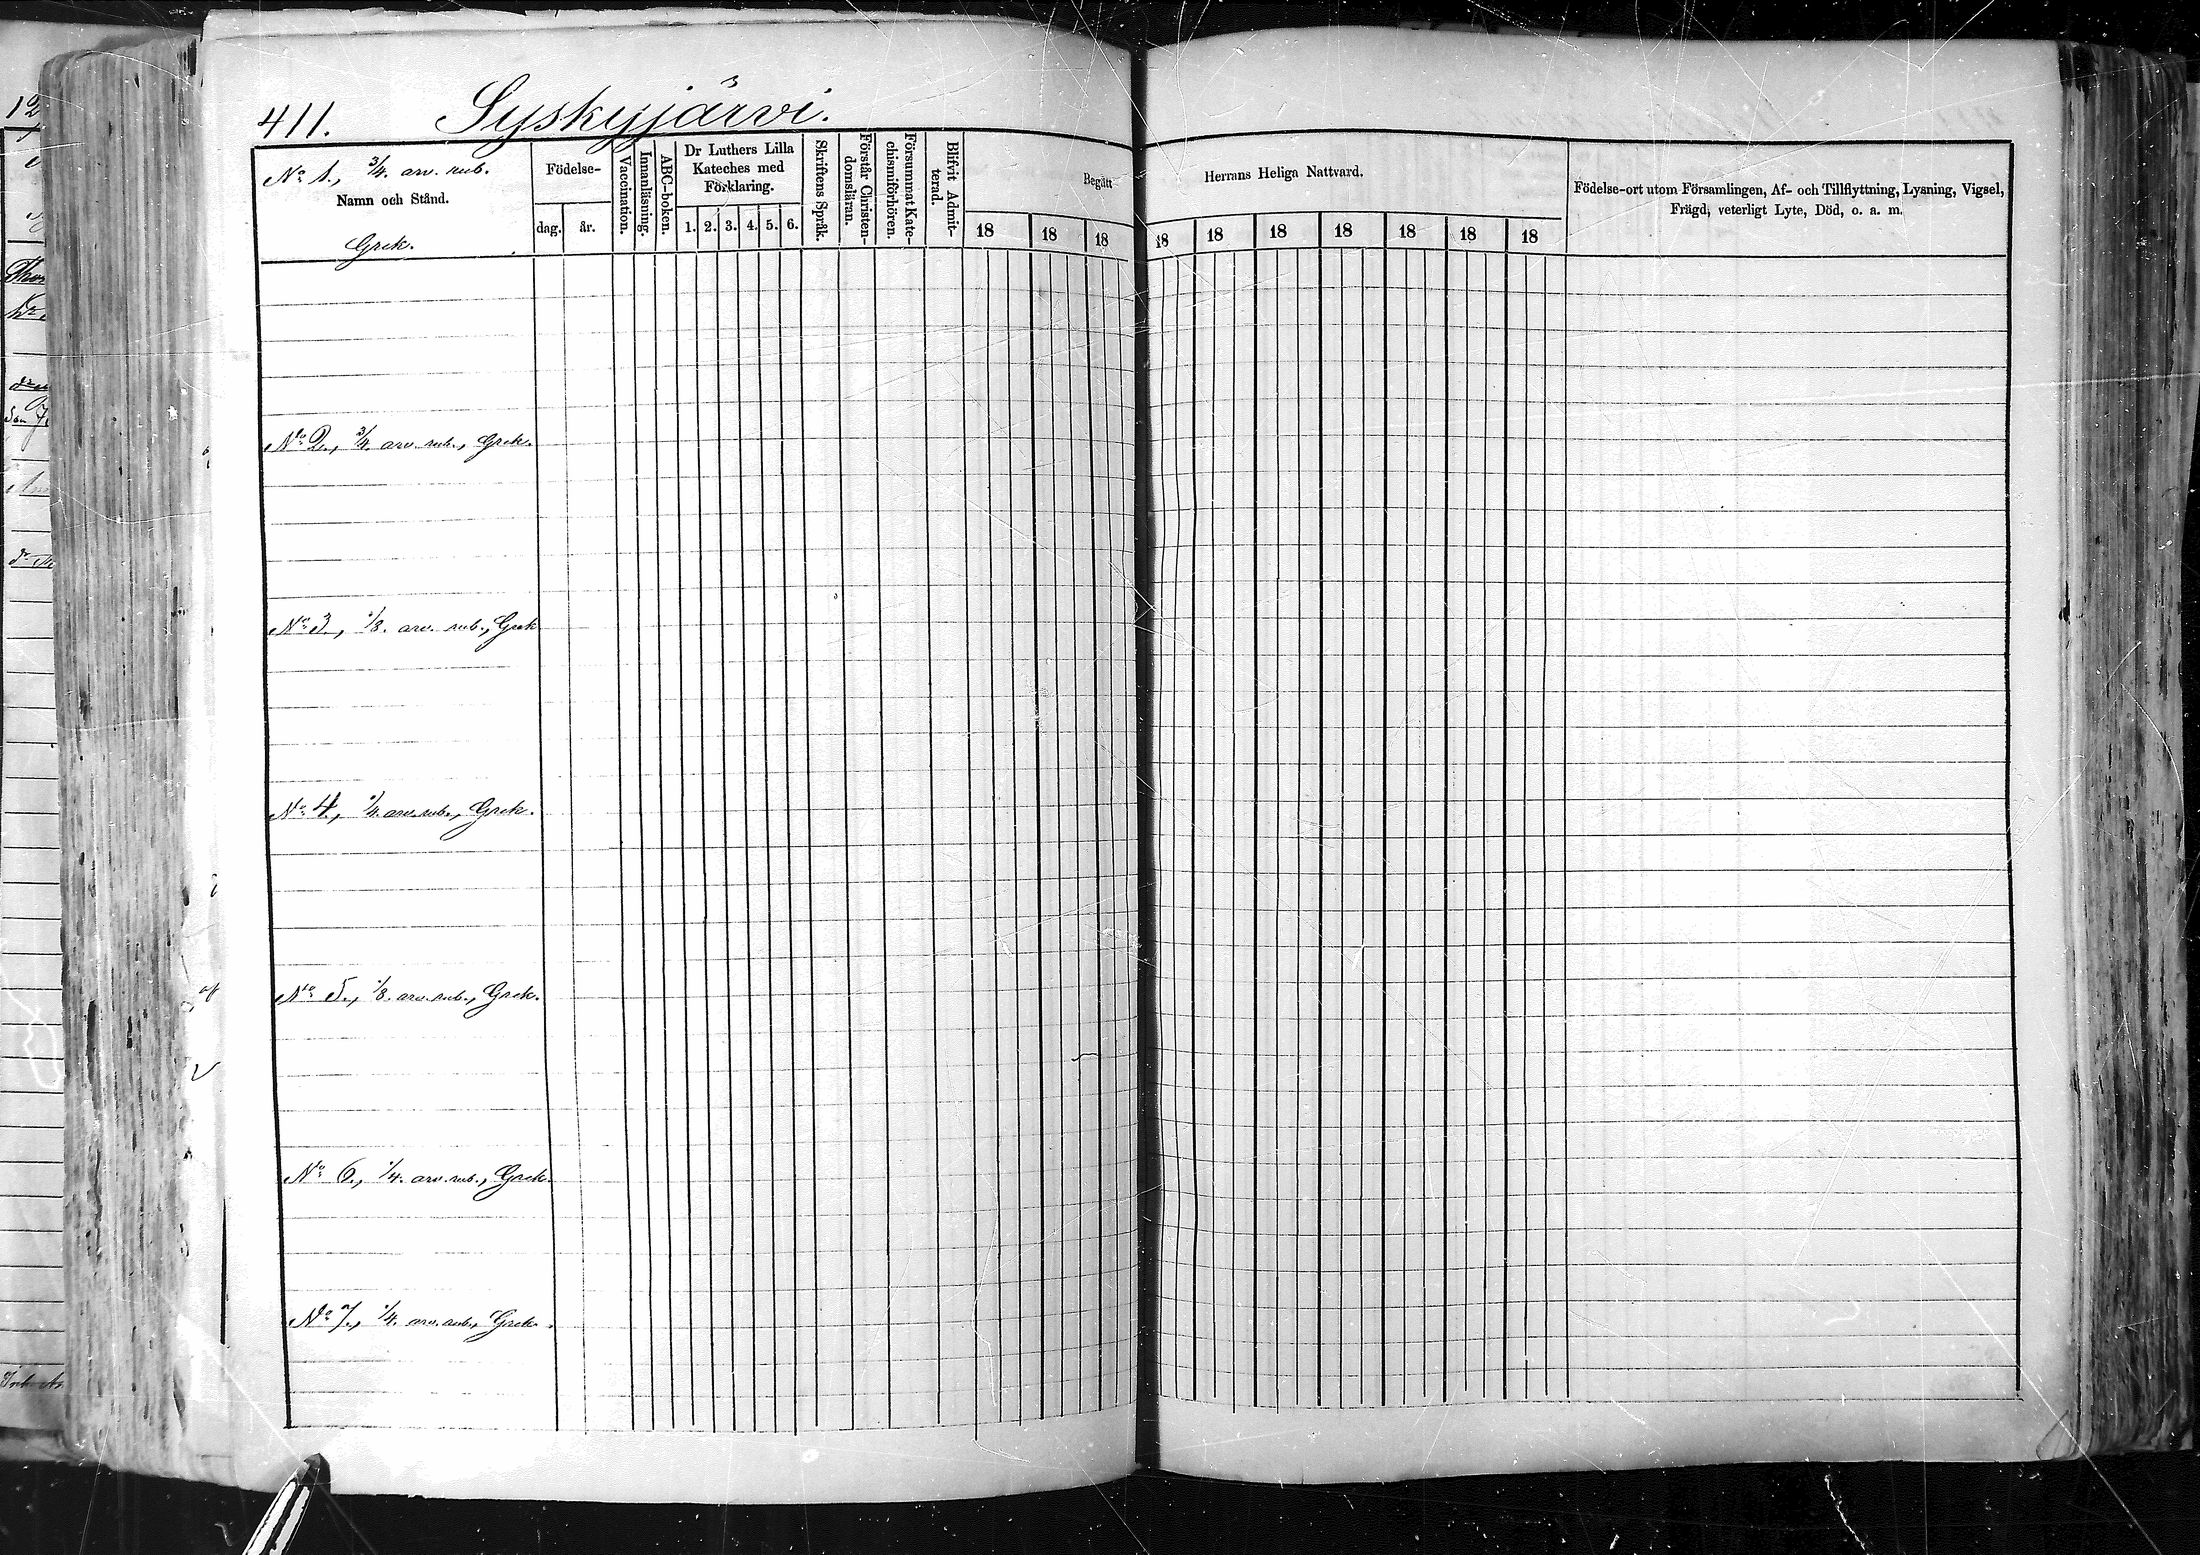 411.
Syskyjärvi.
No 1., 3/4. arv. rub.
Namn och Stånd.
Grek.
Födelse-
dag.
år.
Vaccination.
Innanläsning.
ABC-boken.
Dr Luthers Lilla
Kateches med
Förklaring.
1. 2. 3. 4. 5. 6.
Skriftens Språk.
Förstår Christen-
domsläran.
Försummat Kate-
chismiförhören.
Blifvit Admit-
terad.
Begått
18 18 18
Herrans Heliga Nattvard.
18 18 18 18 18 18 18
Födelse-ort utom Församlingen, Af- och Tillflyttning, Lysning, Vigsel,
Frägd, veterligt Lyte, Död, o. a. m.
No 2., 3/4. arv. rub., Grek.
No 3., 1/8. arv. rub., Grek
No 4., 1/4. arv. rub., Grek.
No 5., 1/8. arv. rub., Grek.
No 6., 1/4. arv. rub., Grek.
No 7., 1/4. arv. rub., Grek.